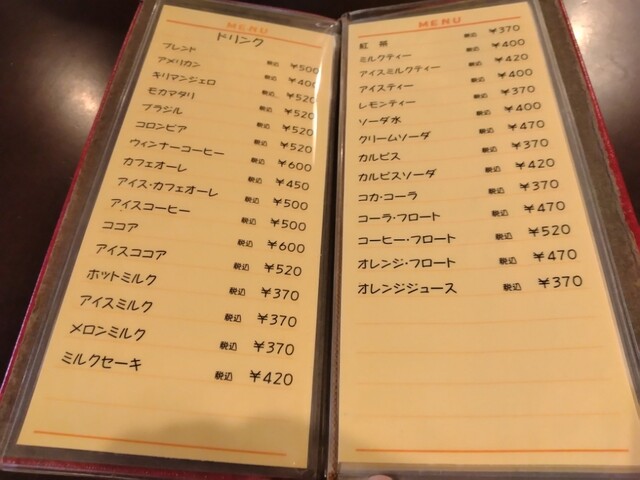 MENU
ドリンク
ブレンド 税込 ¥500
アメリカン 税込 ¥400
キリマンジェロ 税込 ¥520
モカマタリ 税込 ¥520
ブラジル 税込 ¥520
コロンビア 税込 ¥520
ウィンナーコーヒー 税込 ¥600
カフェオーレ 税込 ¥450
アイス・カフェオーレ 税込 ¥500
アイスコーヒー 税込 ¥500
ココア 税込 ¥600
アイスココア 税込 ¥520
ホットミルク 税込 ¥370
アイスミルク 税込 ¥370
メロンミルク 税込 ¥370
ミルクセーキ 税込 ¥420
MENU
紅茶 税込 ¥370
ミルクティー 税込 ¥400
アイスミルクティー 税込 ¥420
アイスティー 税込 ¥400
レモンティー 税込 ¥370
ソーダ水 税込 ¥400
クリームソーダ 税込 ¥470
カルピス 税込 ¥370
カルピスソーダ 税込 ¥420
コカ・コーラ 税込 ¥370
コーラ・フロート 税込 ¥470
コーヒー・フロート 税込 ¥520
オレンジ・フロート 税込 ¥470
オレンジジュース 税込 ¥370